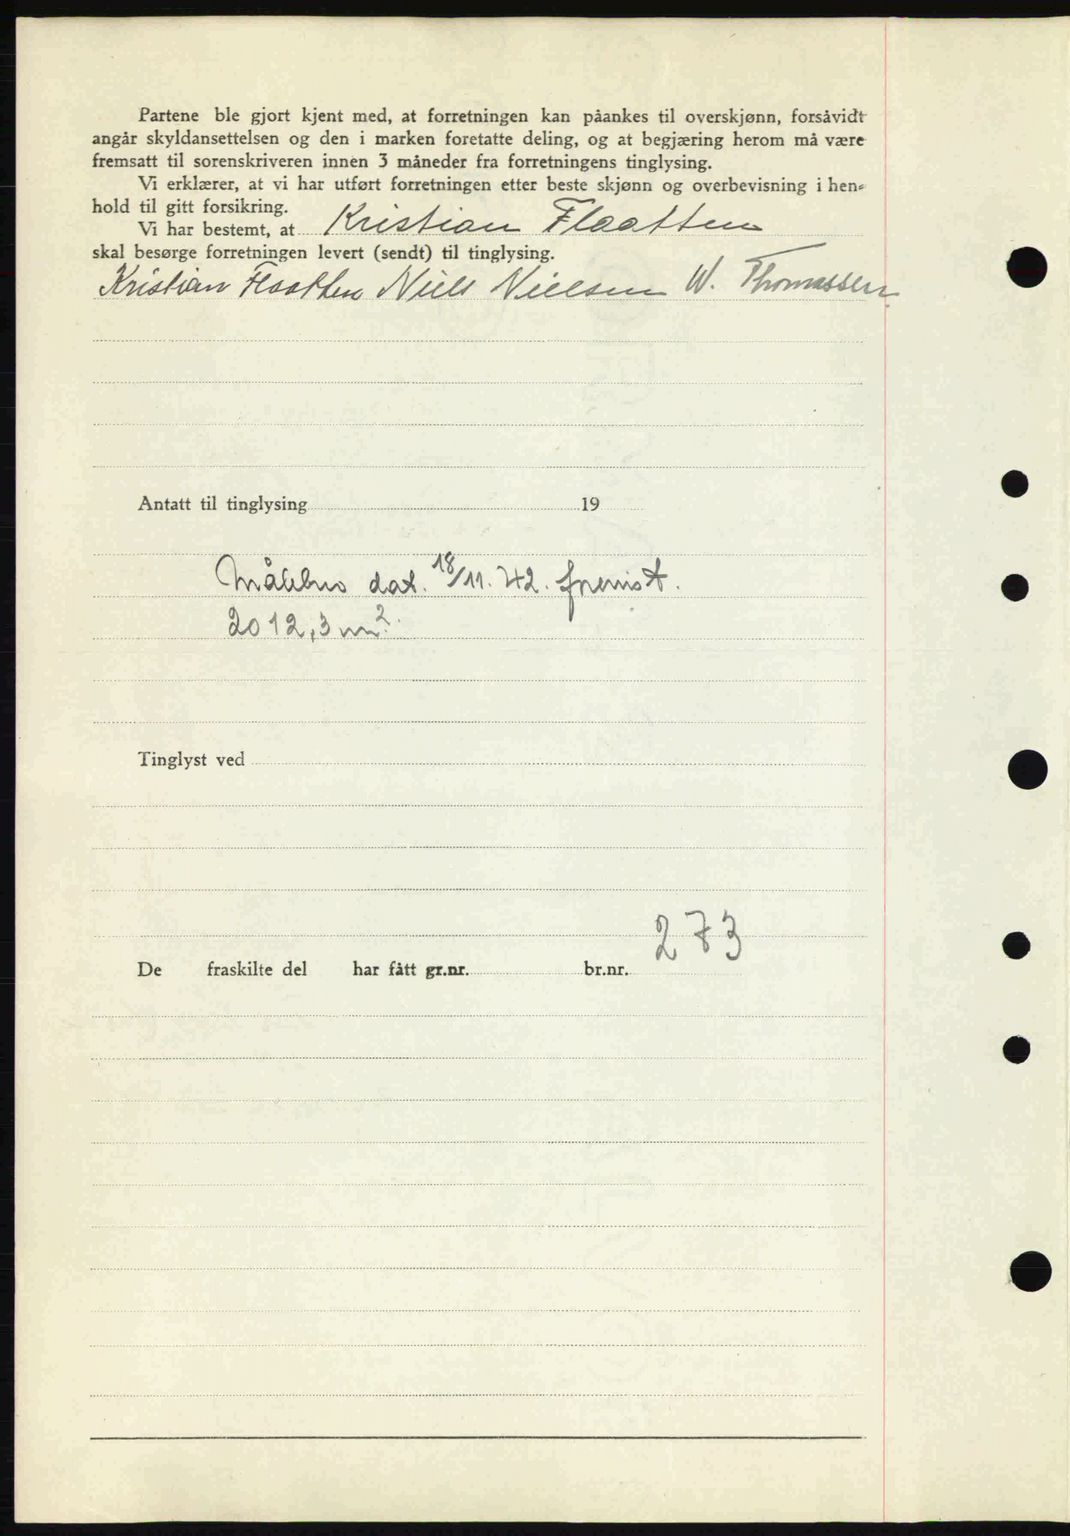 Partene ble gjort kjent med, at forretningen kan påankes til overskjønn, forsåvidt
angår skyldansettelsen og den i marken foretatte deling, og at begjæring herom må være
fremsatt til sorenskriveren innen 3 måneder fra forretningens tinglysing.
Vi erklærer, at vi har utført forretningen etter beste skjønn og overbevisning i hen-
hold til gitt forsikring.
Vi har bestemt, at Kristian Flaatten
skal besørge forretningen levert (sendt) til tinglysing.
Kristian Flaatten Niels Nielsen W. Thomassen
Antatt til tinglysing 19
Målebrev dat. 18/11. 42. fremist.
2012,3 m².
Tinglyst ved
273
De fraskilte del har fått gr.nr. br.nr.